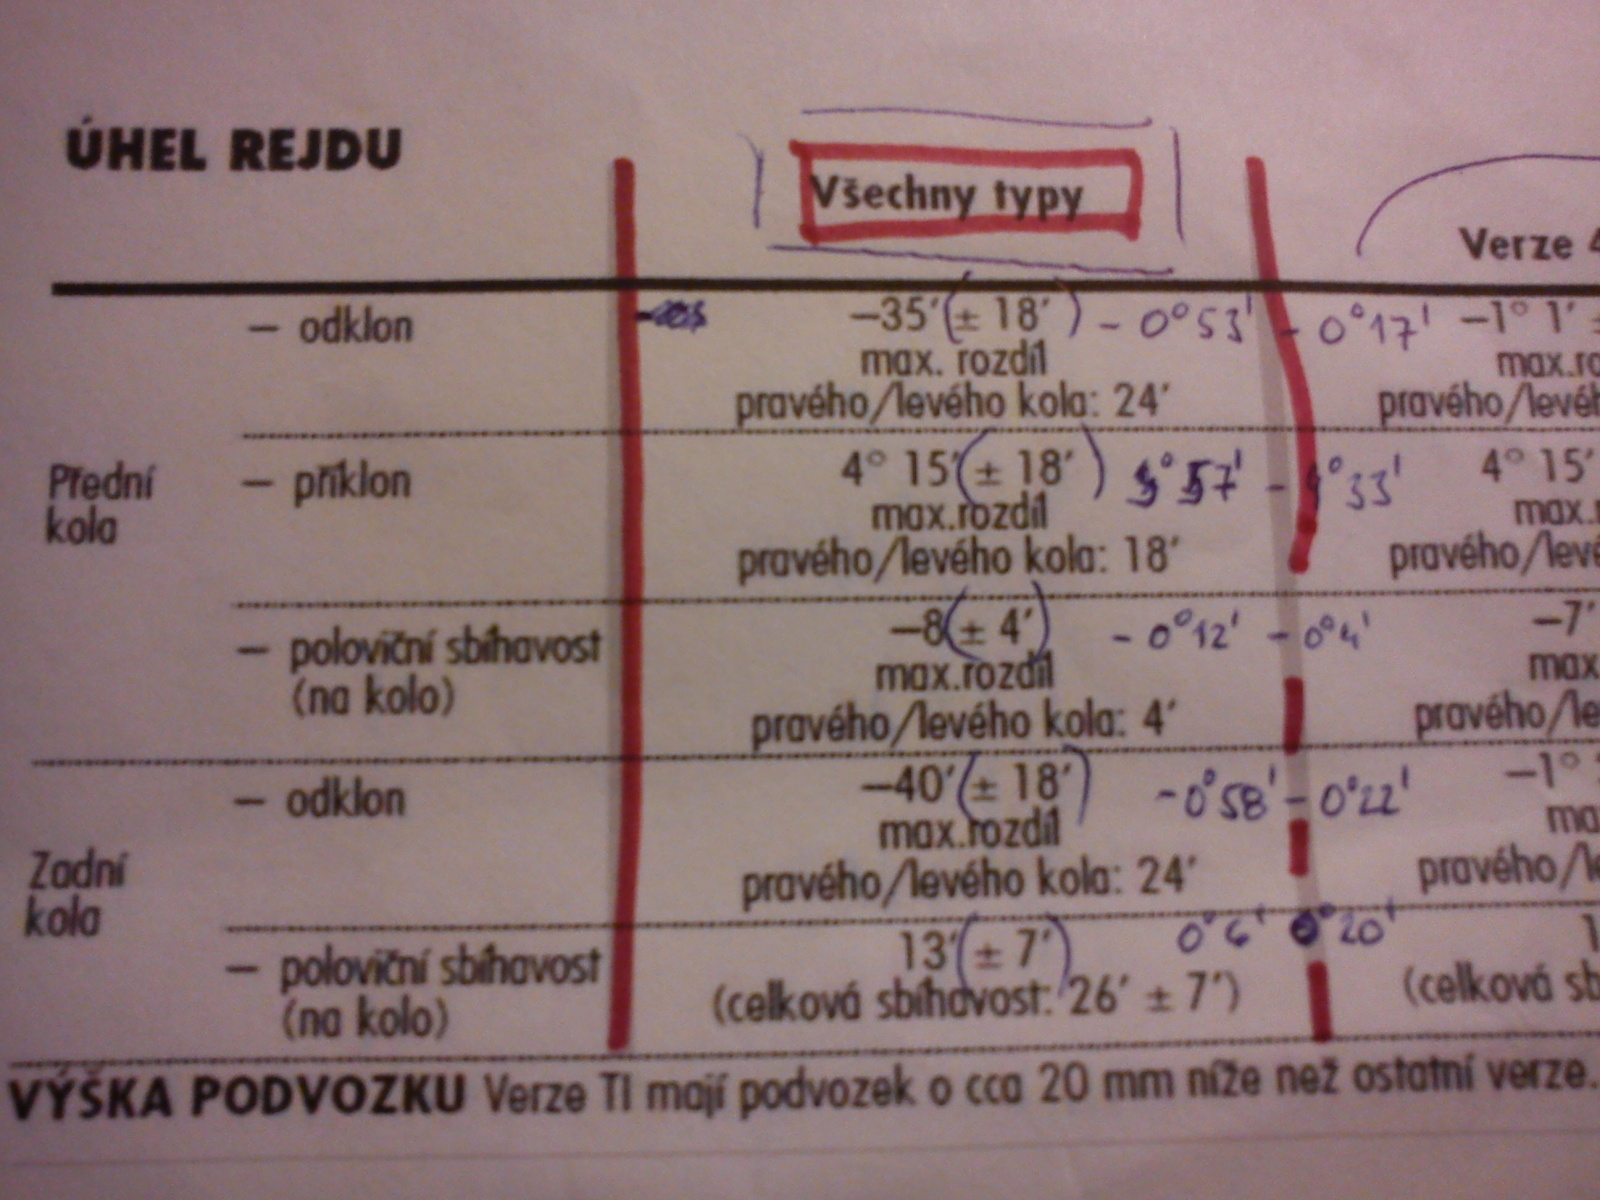 ÚHEL REJDU
Všechny typy
Verze 4
– odklon –35′ (± 18′) - 0°53' - 0°17' –1° 1′ ±
max. rozdíl max. ro
pravého/levého kola: 24′ pravého/levéh
Přední kola – příklon 4° 15′ (± 18′) 3°57' - 4°33' 4° 15′
max.rozdíl max.r
pravého/levého kola: 18′ pravého/levé
– poloviční sbíhavost –8 (± 4′) - 0°12' - 0°4' –7′
(na kolo) max.rozdíl max.
pravého/levého kola: 4′ pravého/le
– odklon –40′ (± 18′) -0°58' - 0°22' –1°
max.rozdíl ma
Zadní kola pravého/levého kola: 24′ pravého/le
– poloviční sbíhavost 13′ (± 7′) 0°6' 0°20' 1
(na kolo) (celková sbíhavost: 26′ ± 7′) (celková sb
VÝŠKA PODVOZKU Verze TI mají podvozek o cca 20 mm níže než ostatní verze.